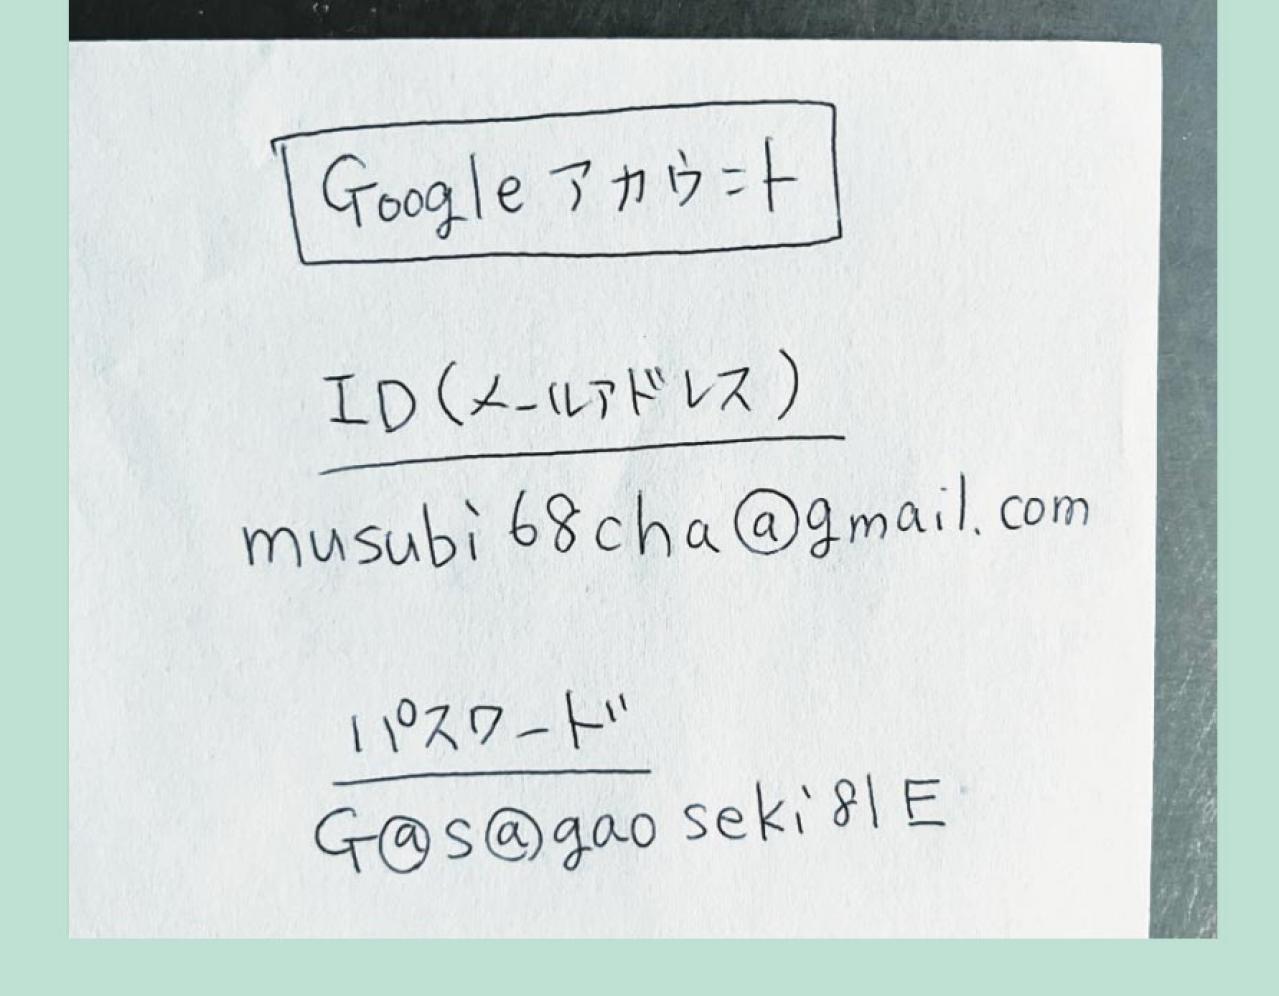 Googleアカウント
ID(メールアドレス)
musubi68cha@gmail.com
パスワード
G@s@gaoseki81E